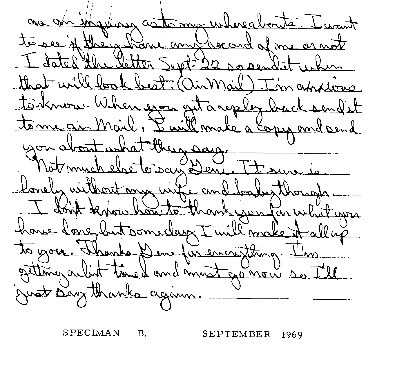 are an inquiry as to my whereabouts. I want
to see if they have any record of me or not
I dated the letter Sept-22 so send it when
that will look best. (Air Mail) I'm anxious
to know. When you get a repley back send it
to me air Mail, I will make a copy and send
you about what they say.
Not much else to say Gene. It sure is
lonely without my wife and baby though
I don't know how to thank you for what you
have done, but someday I will make it all up
to you. Thanks Gene for everything. I'm
getting a bit tired and must go now so I'll
just say thanks again.
SPECIMAN B. SEPTEMBER 1969